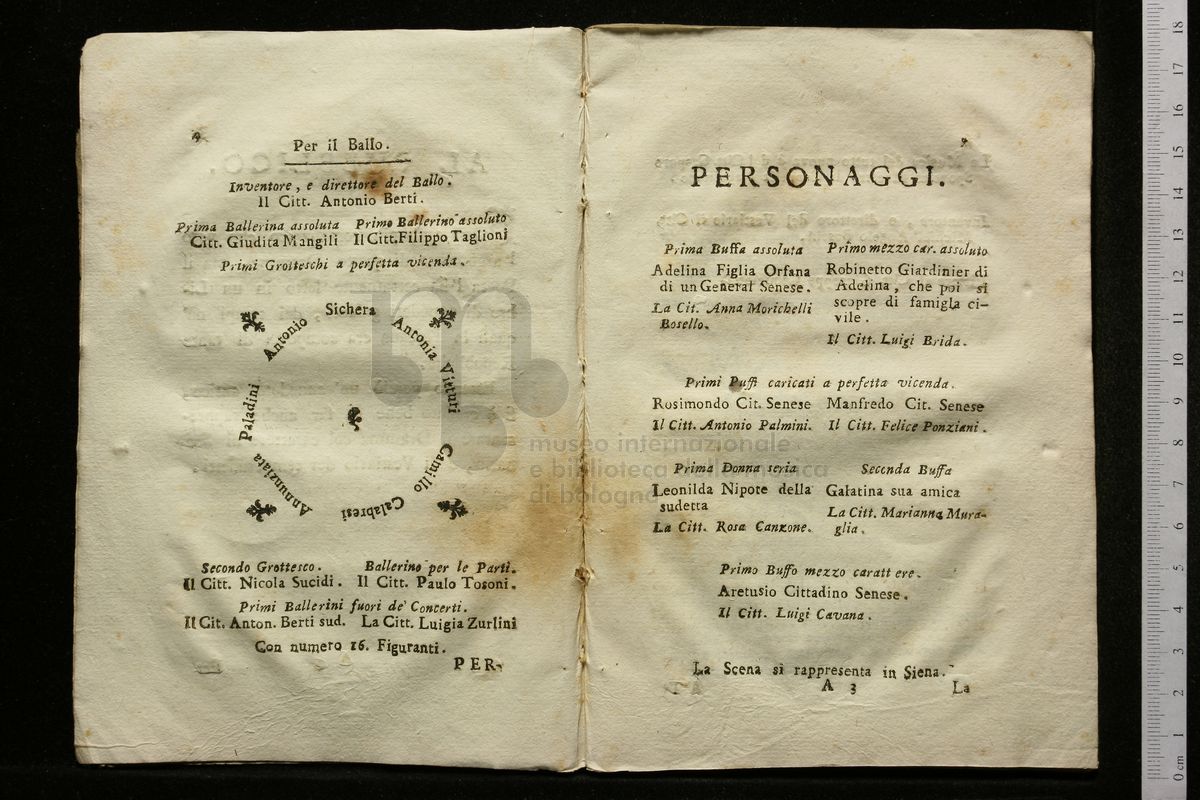 Per il Ballo.
Inventore, e direttore del Ballo.
Il Citt. Antonio Berti.
Prima Ballerina assoluta Primo Ballerino assoluto
Citt. Giudita Mangili Il Citt. Filippo Taglioni
Primi Grotteschi a perfetta vicenda.
Antonio Sichera
Antonia Vieturi
Camillo Calabresi
Annunziata Paladini
Secondo Grottesco. Ballerino per le Parti.
Il Citt. Nicola Sucidi. Il Citt. Paulo Tosoni.
Primi Ballerini fuori de' Concerti.
Il Cit. Anton. Berti sud. La Citt. Luigia Zurlini
Con numero 16. Figuranti.
PER-
PERSONAGGI.
Prima Buffa assoluta Primo mezzo car. assoluto
Adelina Figlia Orfana Robinetto Giardinier di
di un General Senese. Adelina, che poi si
scopre di famigla ci-
vile.
La Cit. Anna Morichelli
Bosello.
Il Citt. Luigi Brida.
Primi Buffi caricati a perfetta vicenda.
Rosimondo Cit. Senese Manfredo Cit. Senese
Il Citt. Antonio Palmini. Il Citt. Felice Ponziani.
Prima Donna seria Seconda Buffa
Leonilda Nipote della Galatina sua amica
sudetta
La Citt. Marianna Mura-
glia.
La Citt. Rosa Canzone.
Primo Buffo mezzo caratt ere.
Aretusio Cittadino Senese.
Il Citt. Luigi Cavana.
La Scena si rappresenta in Siena.
A 3 La
museo internazionale
e biblioteca della musica
di bologna
0 cm 1 2 3 4 5 6 7 8 9 10 11 12 13 14 15 16 17 18